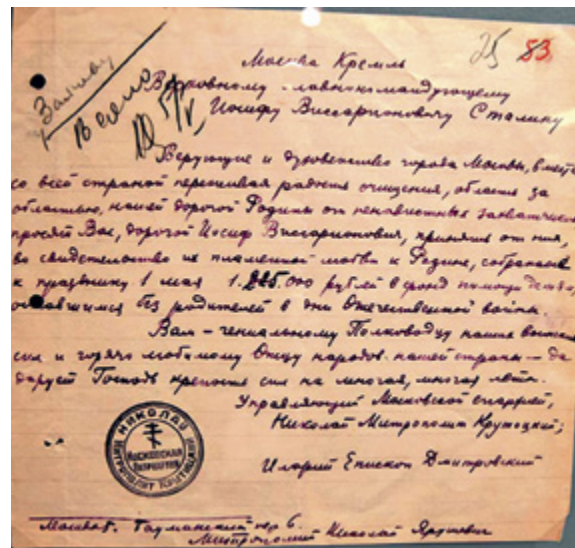 25 83
Москва Кремль
Верховному Главнокомандующему
Иосифу Виссарионовичу Сталину
Верующие и духовенство города Москвы, вместе
со всей страной переживая радость очищения, область за
областью, нашей дорогой Родины от ненавистных захватчиков
просят Вас, дорогой Иосиф Виссарионович, принять от них,
во свидетельство их пламенной любви к Родине, собранные
к празднику 1 мая рублей в фонд помощи детям,
оставшимся без родителей в дни Отечественной войны.
Вам – гениальному Полководцу наших военных
сил и горячо любимому Отцу народов нашей страны – да
дарует Господь крепость сил на многая, многая лета.
Управляющий Московской епархией,
Николай Митрополит Крутицкий;
Иларий Епископ Дмитровский
НИКОЛАЙ
МИТРОПОЛИТ КРУТИЦКИЙ
МОСКОВСКАЯ
ЕПАРХИЯ
Москва. Бауманский пер 6.
Митрополит Николай Ярушевич